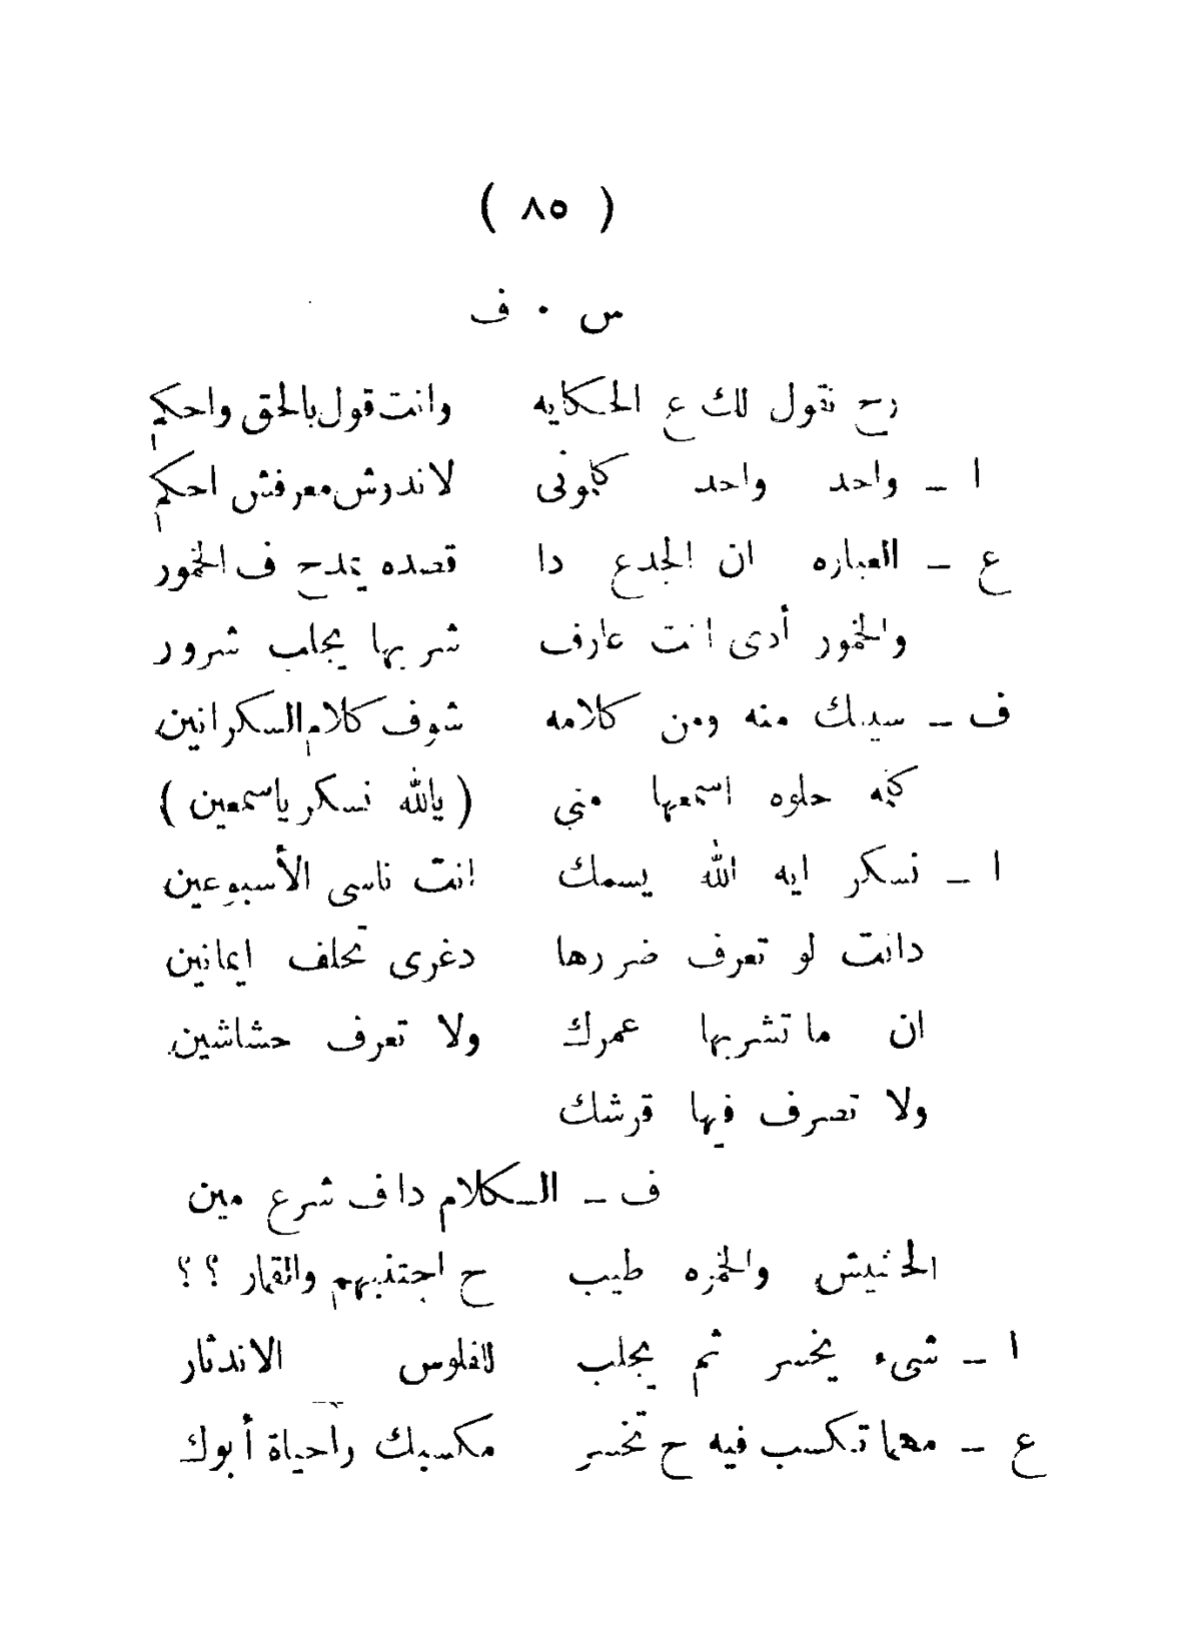 ( ٨٥ )
س ٠ ف
رح نقول لك ع الحكايه وانت قول بالحق واحكم
ا ــ واحد واحد كلمونى لاندرش معرفش احكم
ع ــ العباره ان الجدع دا قصده يمدح ف الخمور
والخمور أدى انت عارف شربها يجلب شرور
ف ــ سيبك منه ومن كلامه شوف كلام السكرانين
كلمه حلوه اسمعها منى ( يالله نسكر ياسمعين )
ا ــ نسكر ايه الله يسمك انت ناسى الأسبوعين
دانت لو تعرف ضررها دغرى تحلف ايمانين
ان ما تشربها عمرك ولا تعرف حشاشين
ولا تصرف فيها قرشك
ف ــ الكلام دا ف شرع مين
الحشيش والخمره طيب ح اجتنبهم والقمار ؟ ؟
ا ــ شىء يخسر ثم يجلب للفلوس الاندثار
ع ــ مهما تكسب فيه ح تخسر مكسبك وأحياة أبوك